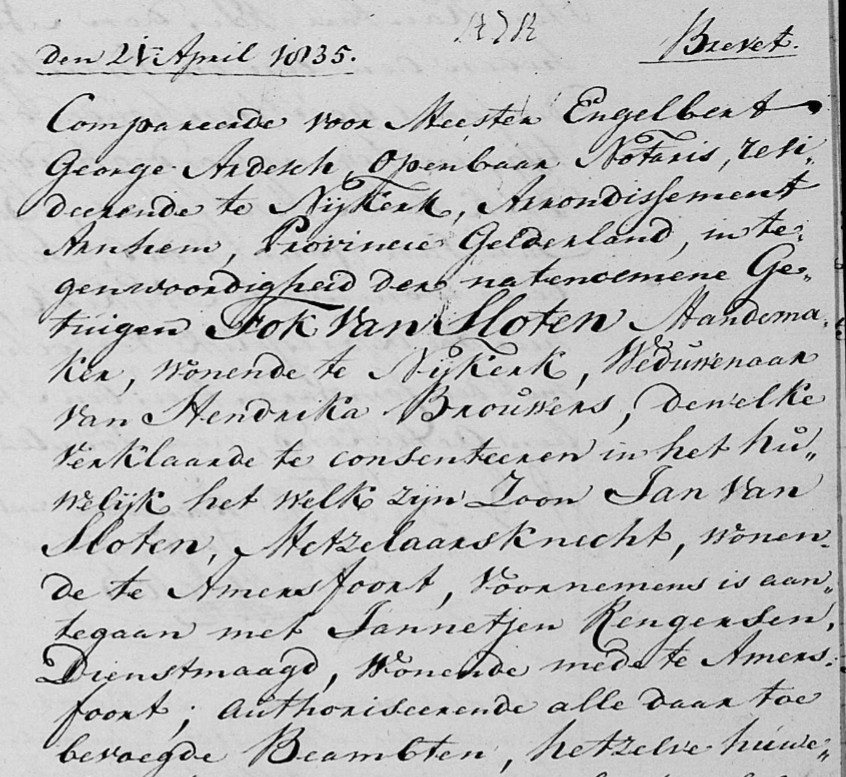 den 21en April 1835. Brevet.
Compareerde voor Meester Engelbert
George Ardesch, Openbaar Notaris, resi„
deerende te Nijkerk, Arrondissement
Arnhem, Provincie Gelderland, in te„
genwoordigheid der natenoemene Ge„
tuigen Fok van Sloten Mandema„
ker, wonende te Nijkerk, Weduwenaar
van Hendrika Brouwers, dewelke
verklaarde te consenteeren in het hu„
welijk het welk zijn Zoon Jan van
Sloten, Metzelaarsknecht, wonen„
de te Amersfoort, voornemens is aan„
tegaan met Jannetjen Rengersen,
Dienstmaagd, wonende mede te Amers„
foort; authoriseerende alle daar toe
bevoegde Beambten, hetzelve huwe„